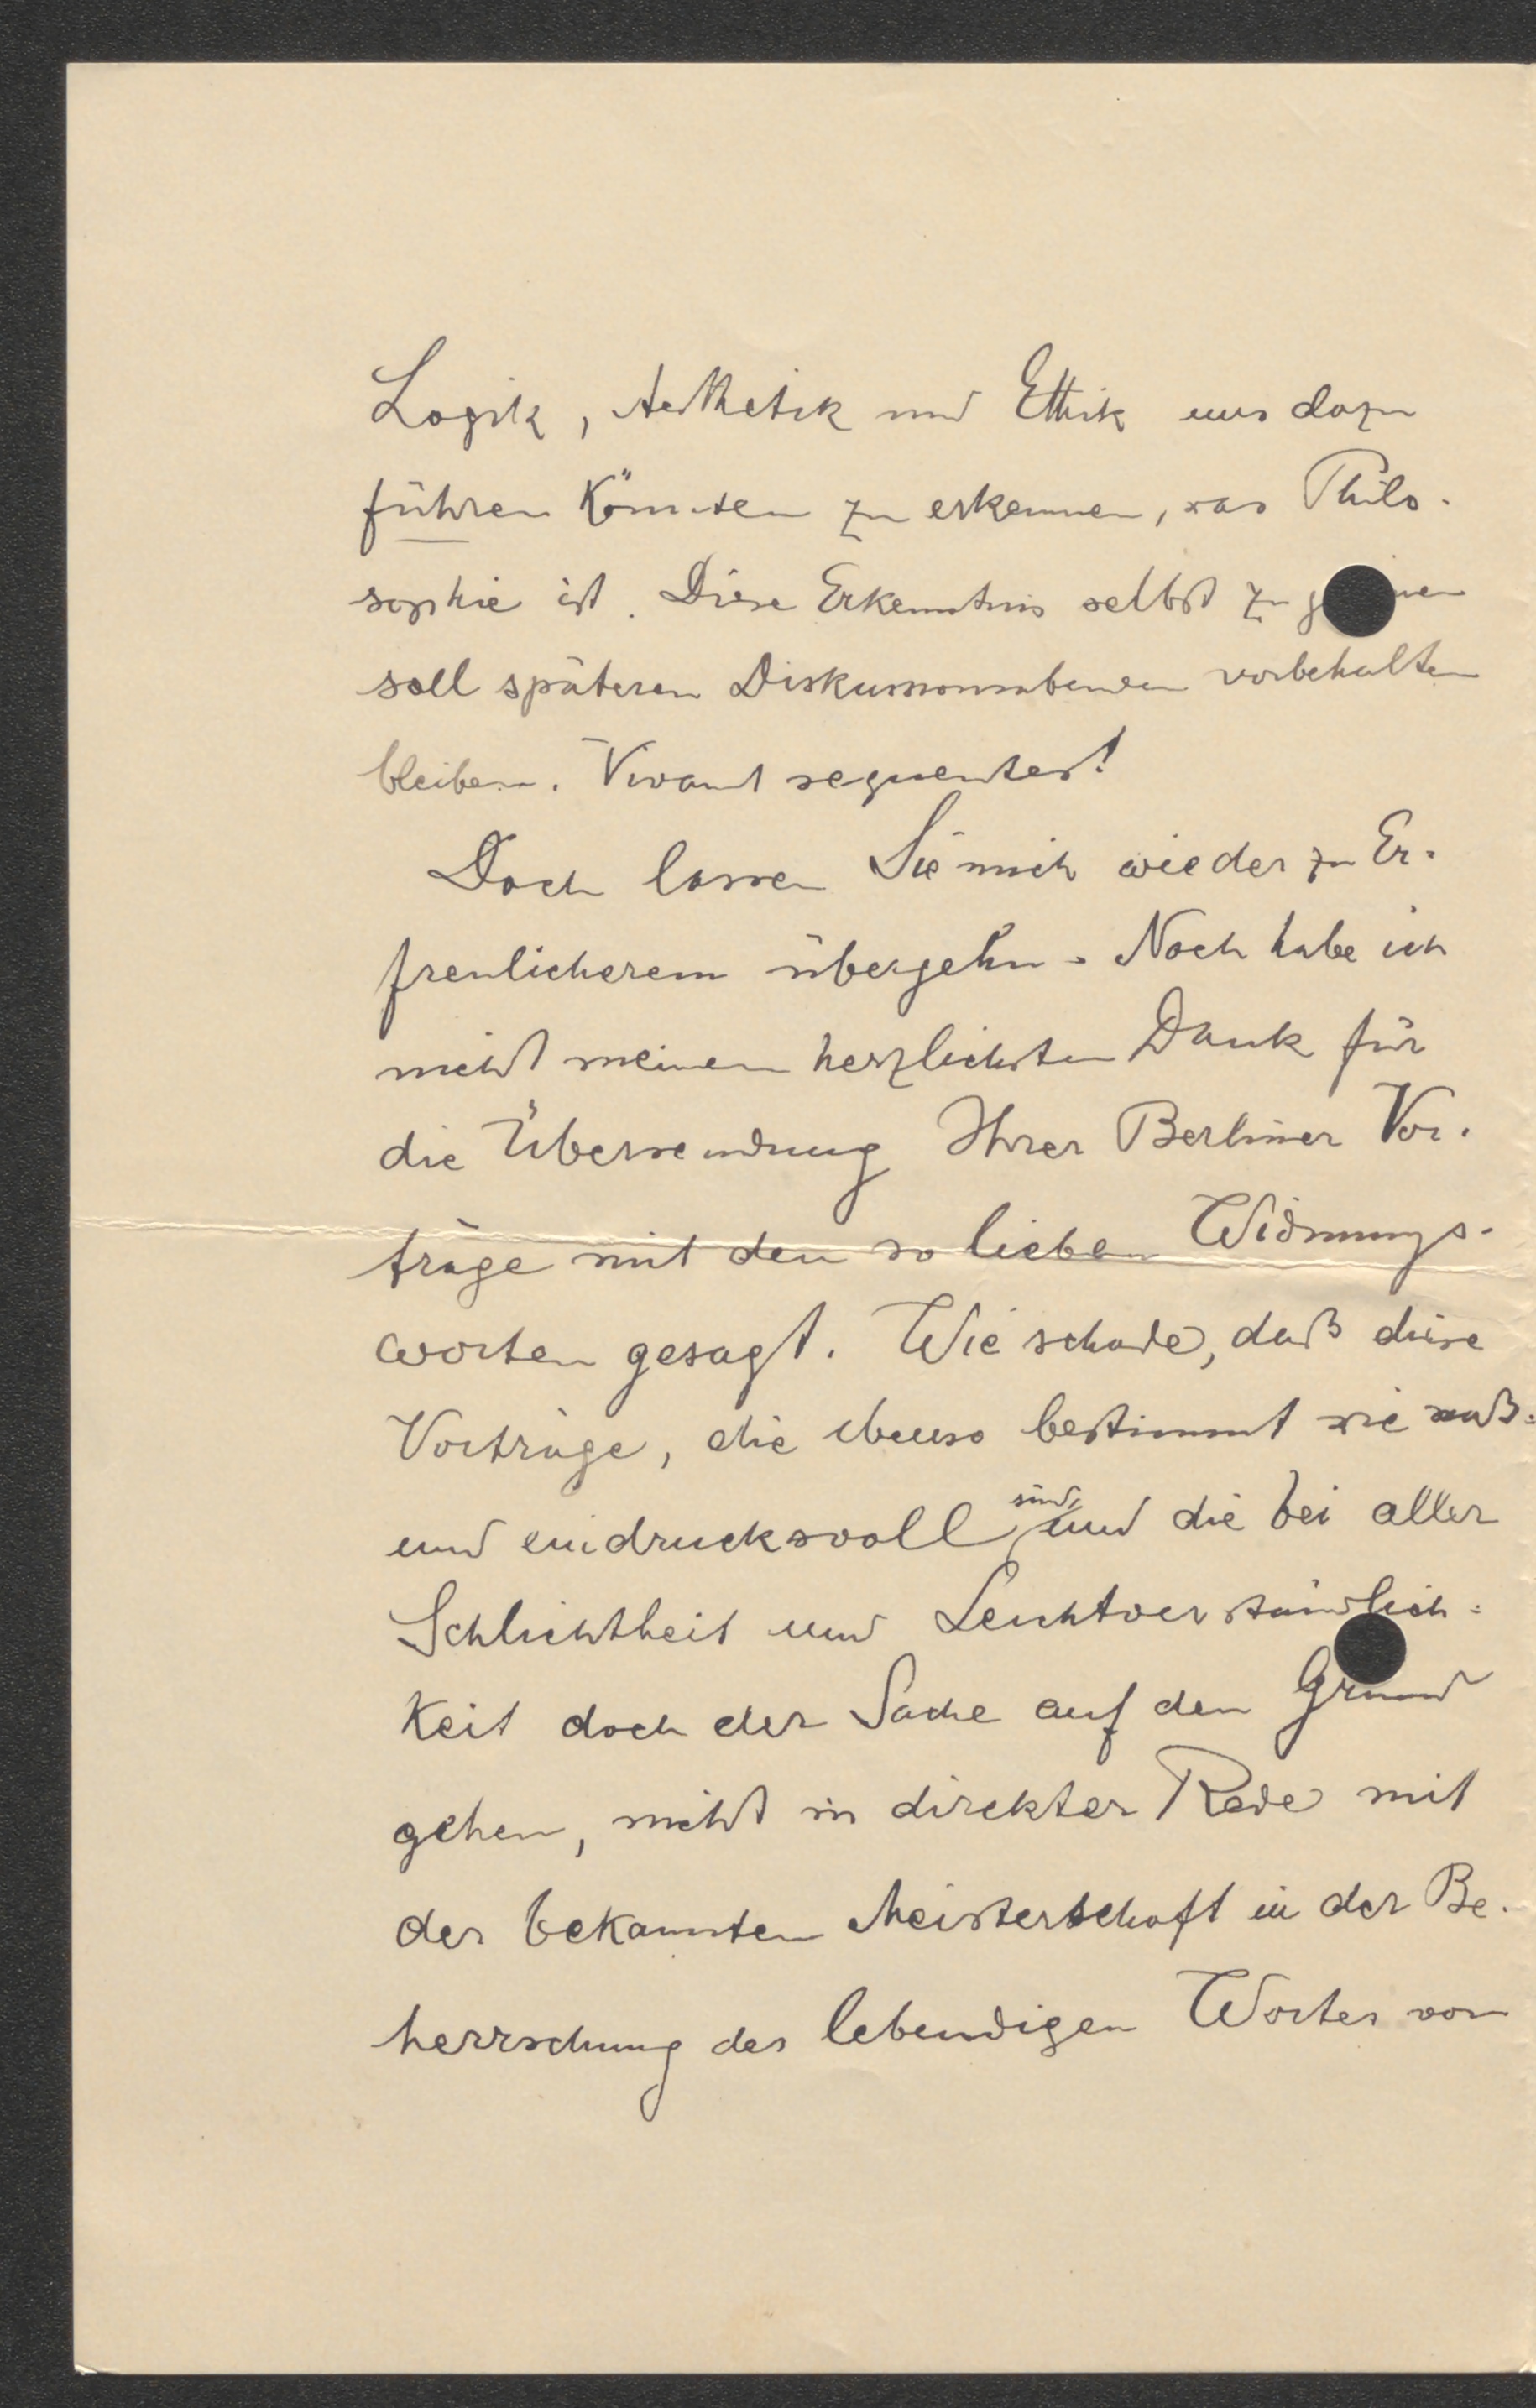 Logik, Aesthetik und Ethik uns dazu
führen könnten zu erkennen, was Philo-
sophie ist. Diese Erkenntnis selbst zu
soll späteren Diskussionsabenden vorbehalten
bleiben. Vivant sequentes!
Doch lassen Sie mich wieder zu Er-
freulicherem übergehn. Noch habe ich
nicht meinen herzlichsten Dank für
die Übersendung Ihrer Berliner Vor-
träge mit den so lieben Widmungs-
worten gesagt. Wie schade, daß diese
Vorträge, die ebenso bestimmt wie maß-
und eindrucksvoll sind, und die bei aller
Schlichtheit und Leichtverständlich-
keit doch der Sache auf den Grund
gehen, nicht in direkter Rede mit
der bekannten Meisterschaft in der Be-
herrschung des lebendigen Wortes von